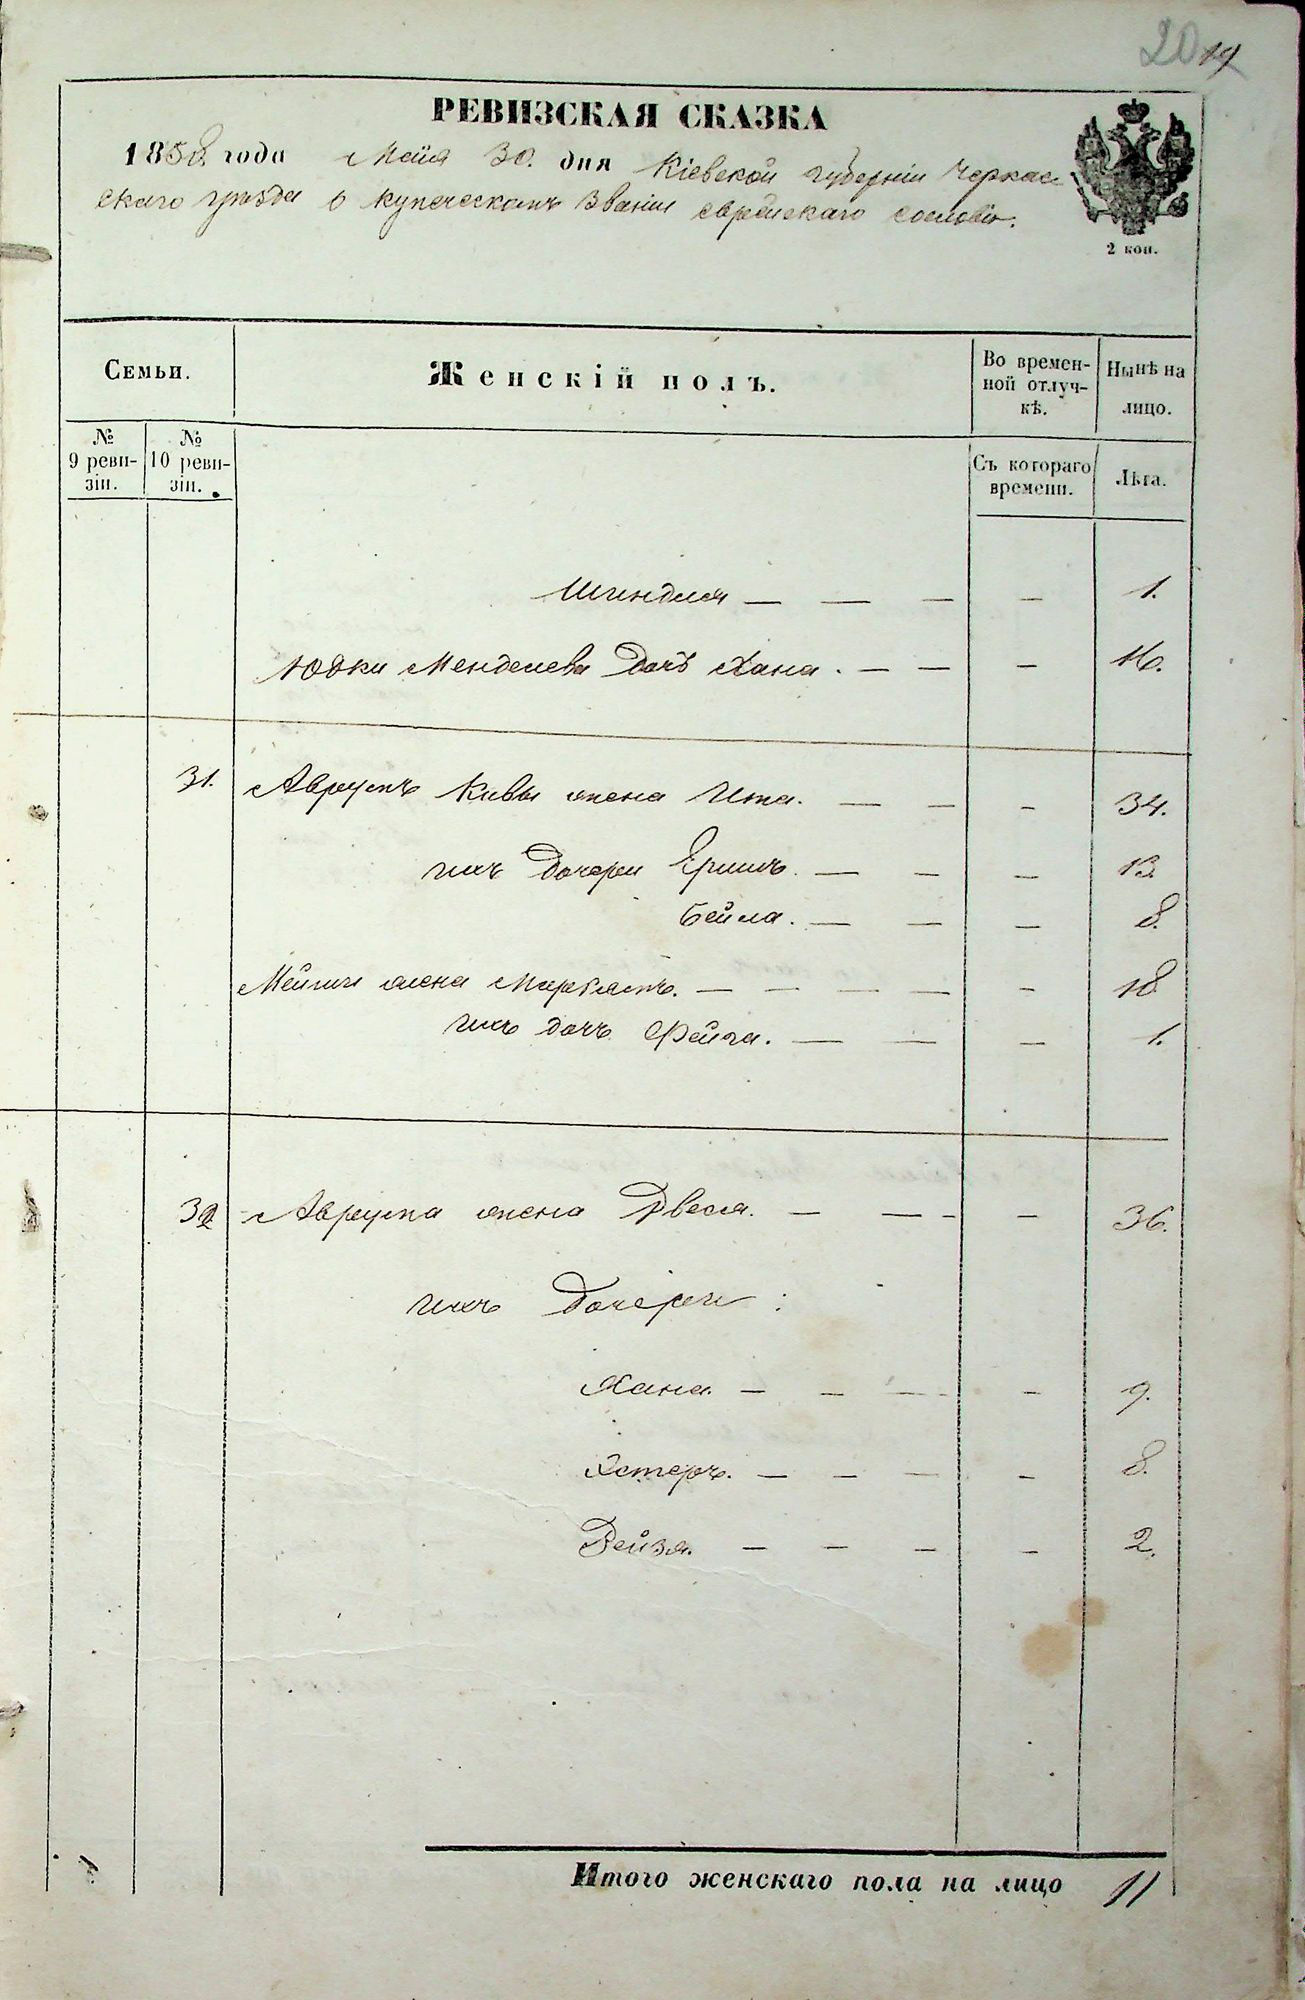 20 19
РЕВИЗСКАЯ СКАЗКА
1858. года Маія 30. дня Кіевской губерніи Черкас
скаго уѣзда о купеческомъ званіи еврейскаго сословія.
2 коп.
Семьи.
Женскій полъ.
Во времен-
ной отлуч-
кѣ.
Нынѣ на
лицо.
№
9 реви-
зіи.
№
10 реви-
зіи.
Съ котораго
времени.
Лѣта.
Шиндля — — — — 1.
Юдки Менделева дочь Хана. — — — 16.
31. Аврумъ Кивы жена Ита. — — — 34.
ихъ дочери — — — 13.
Бейла. — — — 8.
жена — — — — — 18
ихъ дочь Фейга. — — — 1.
32 Аврума жена Двося. — — - — 36.
ихъ дочери:
Хана. — — — - — 9.
Эстеръ. — — — — 8.
Рейзя. — — — — 2.
Итого женскаго пола на лицо 11